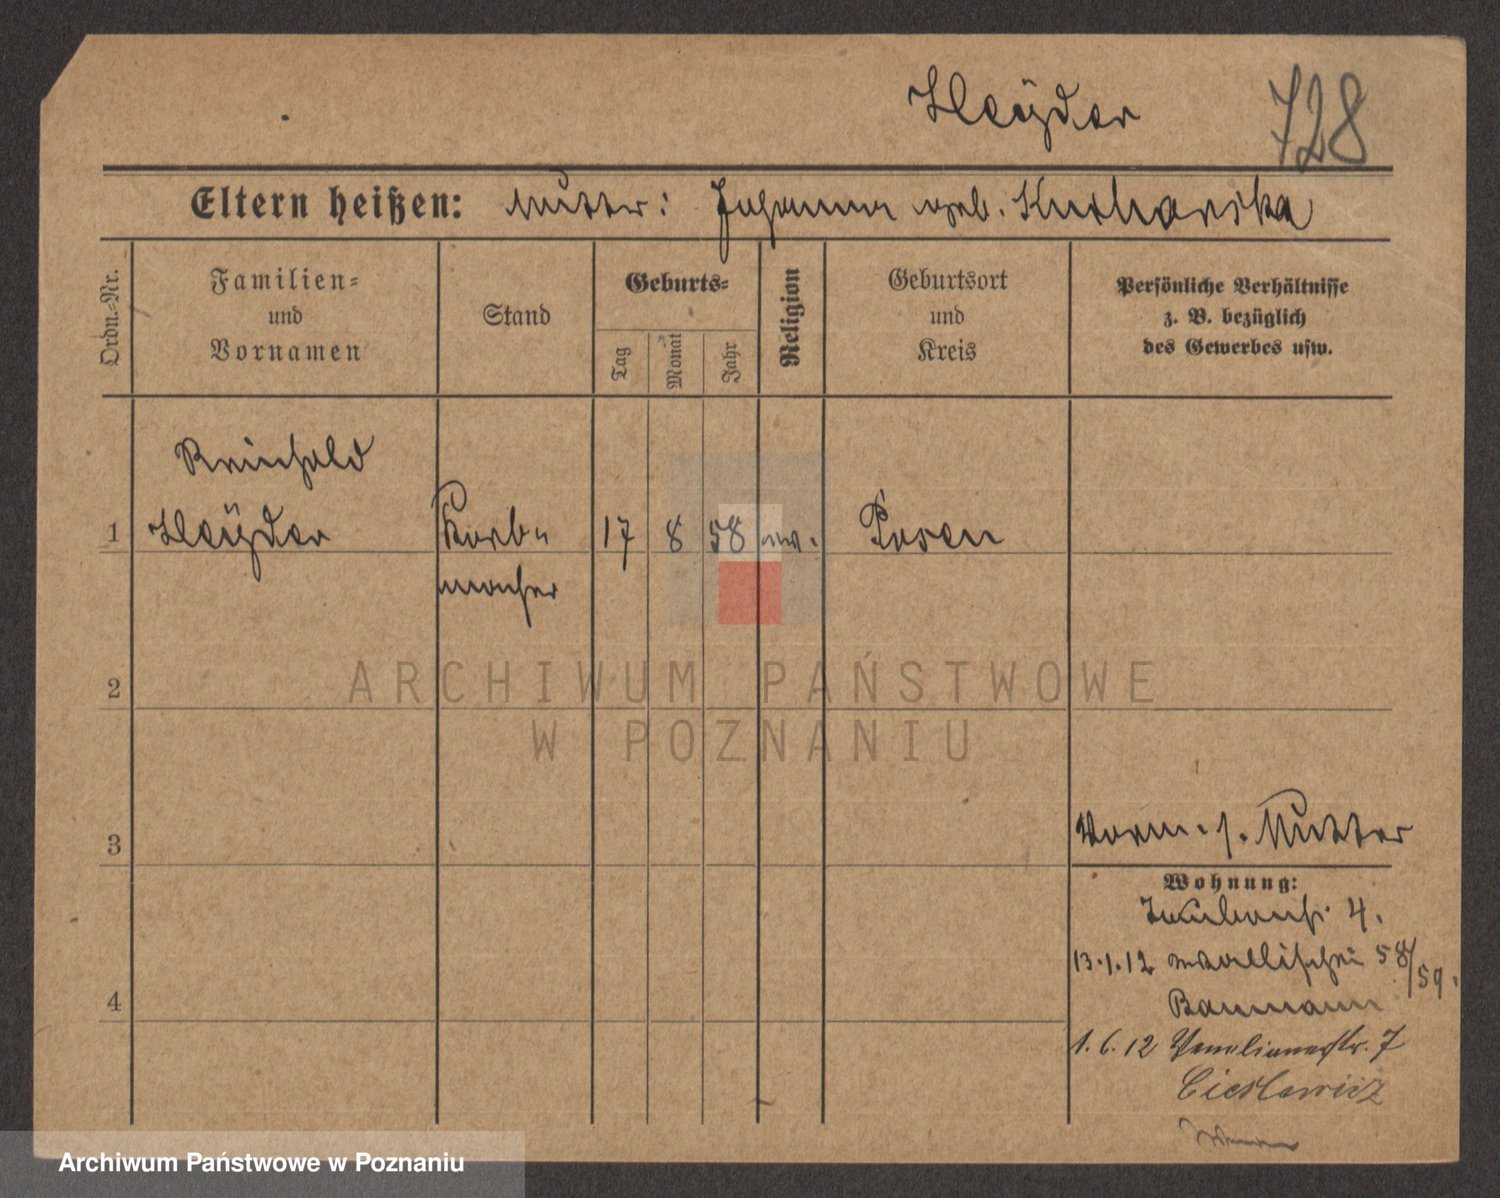 Heyder
728
Eltern heißen: Mutter: Johanna geb. Kucharska
Ordn.-Nr.
Familien-
und
Vornamen
Stand
Geburts-
Tag
Monat
Jahr
Religion
Geburtsort
und
Kreis
Persönliche Verhältnisse
z. B. bezüglich
des Gewerbes usw.
Reinhold
1 Heyder Korb- 17 8 58 ev. Posen
macher
2
3
4
Vorm. s. Mutter
Wohnung:
4.
13.1.12 Wallischei 58/59.
Baumann
1.6.12 7
Cieslewicz
ARCHIWUM PAŃSTWOWE
W POZNANIU
Archiwum Państwowe w Poznaniu